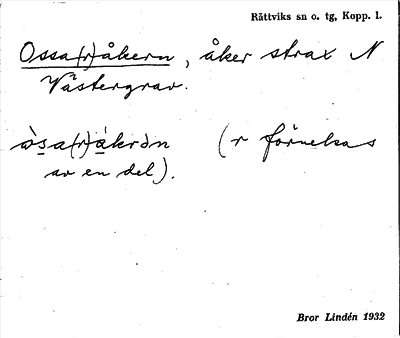 Rättviks sn o. tg, Kopp. l.
Ossa(r)åkern, åker strax N
Västergrav.
òsa(r)åkrən (r förnekas
av en del).
Bror Lindén 1932